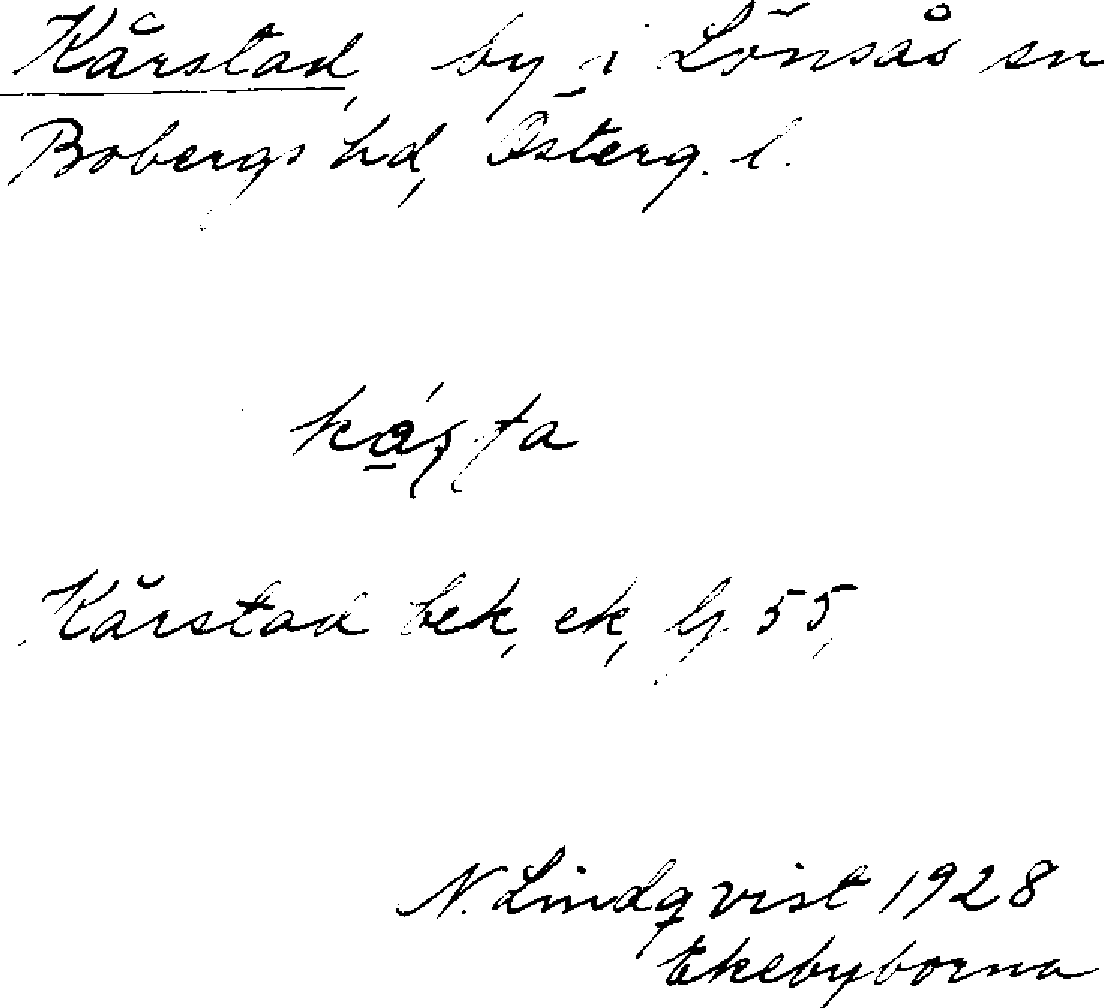 Kårstad, by i Lönsås sn
Bobergs hd, Österg. l.
Kårstad bek, ek, Gs 55,
N. Lindqvist 1928
Ekebyborna